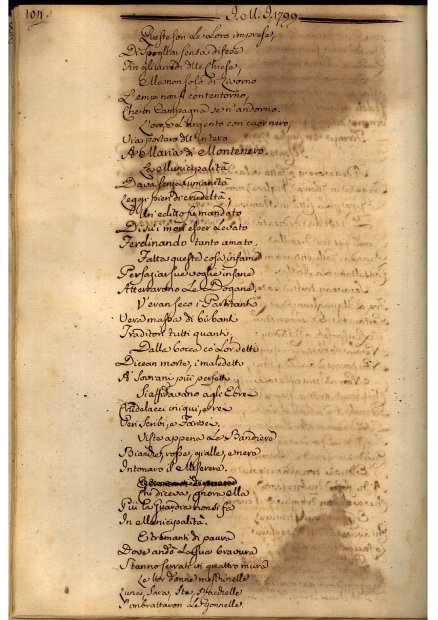 104
I. M. I. 1799
Queste son le loro imprese,
Di spogliar senza difese
An gli arredi delle Chiese,
Ma non solo di Livorno
L'empi non si contentorno,
Che in Campagna se n'andorno.
L'oro, e l'argento con cuor nero,
Via portaro dell'intero
A Maria di Montenero.
La Municipalità
Dava senza umanità
Leggi pien di crudeltà,
Un editto fu mandato
Di sui monti esser levato
Ferdinando tanto amato.
Fatta questa cosa infame
Per saziar sue voglie insane
Atterrarono le Dogane,
V'eran seco i Partitant
Vera massa di birbant
Traditor tutti quant.
Dalla bocca co' lor detti
Dicean morte, i maledetti
A Sovrani più perfetti
Si affidavano agli Ebrei
Crudelacci iniqui, e rei
Veri Scribi, e Farisei.
Viste appena la Bandiere
Bianche, rosse, gialle, e nere
Intonaro il Miserere.
Chi diceva, gnora ella
Più la guardia non si fa
In Municipalità.
E tremanti di paura
Dove andò la sua bravura
Stanno serrati in quattro mura
Le lor donne meschinelle
Lune, Sara, Ste, Stachelle
Simbrattaron le Gonnelle